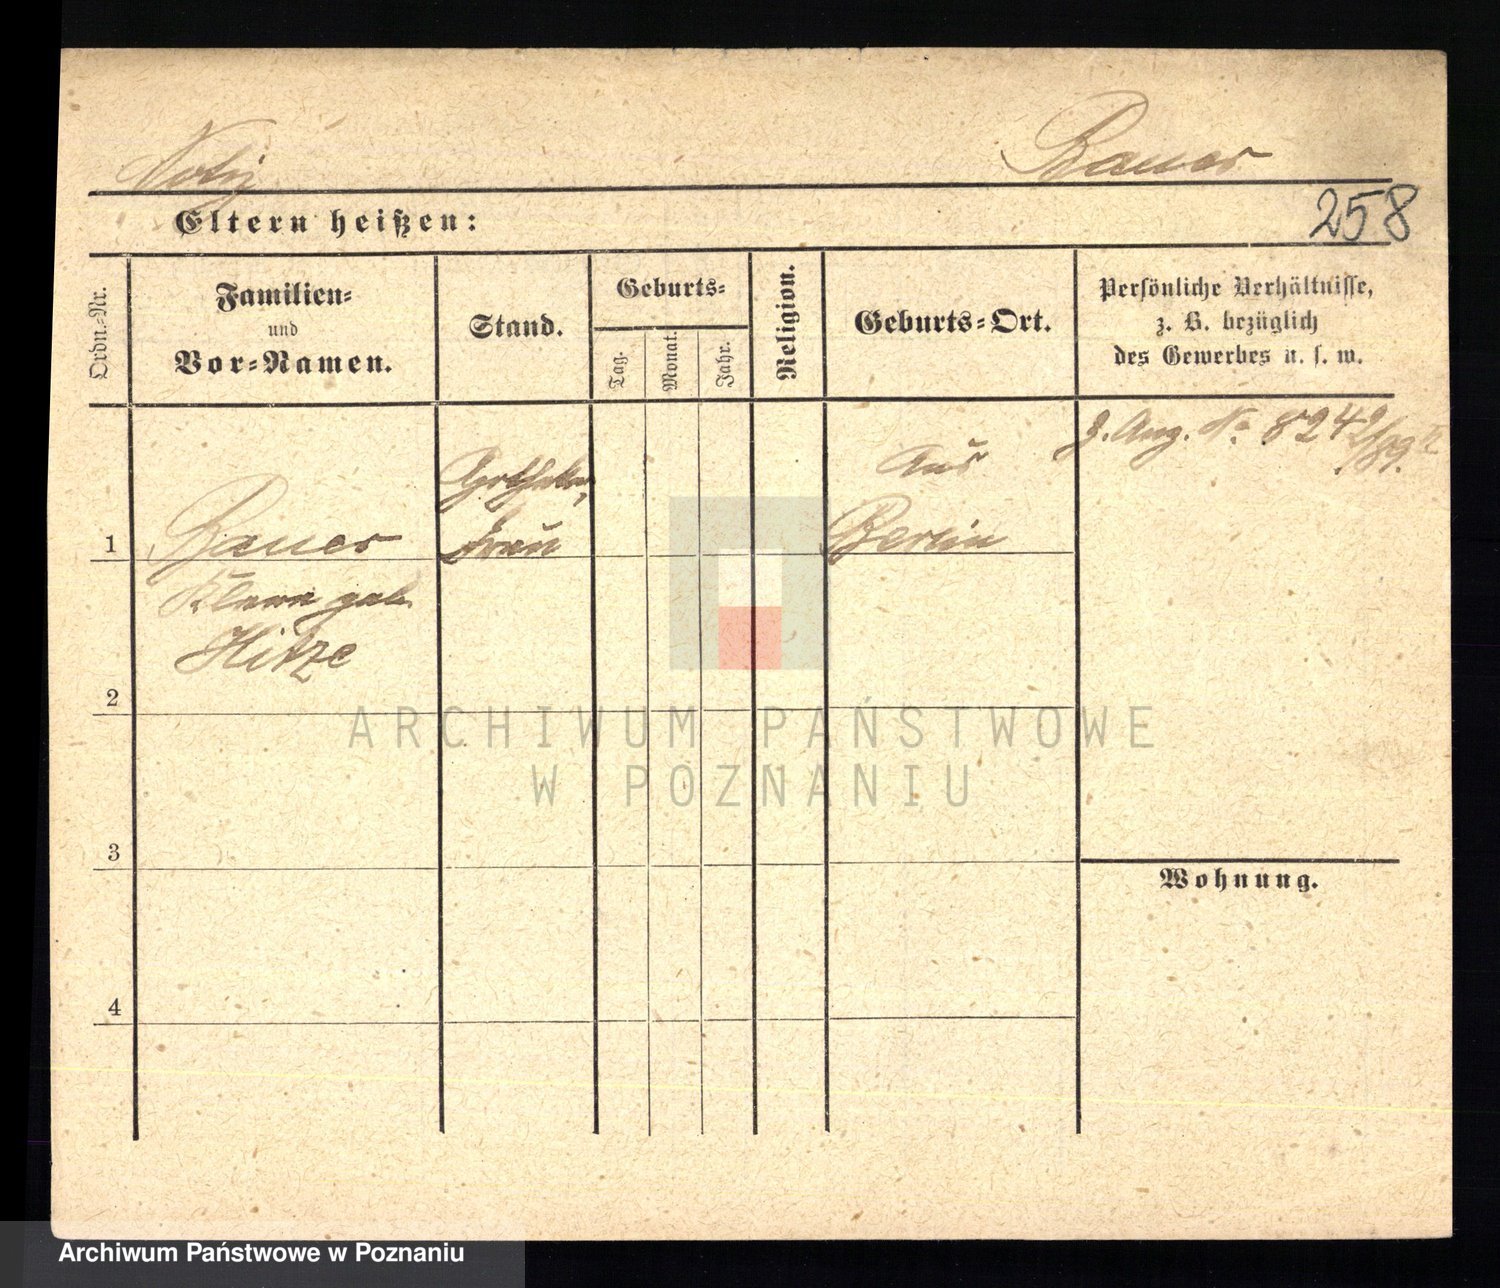 Notiz Bauer
258
Eltern heißen:
Ordn.-Nr.
Familien-
und
Vor-Namen.
Stand.
Geburts-
Tag.
Monat.
Jahr.
Religion.
Geburts-Ort.
Persönliche Verhältnisse,
z. B. bezüglich
des Gewerbes u. s. w.
1
Bauer
geb.
Hitze
Frau
Aus
Berlin
Ang. No 824
2
3
4
Wohnung.
ARCHIWUM PAŃSTWOWE
W POZNANIU
Archiwum Państwowe w Poznaniu